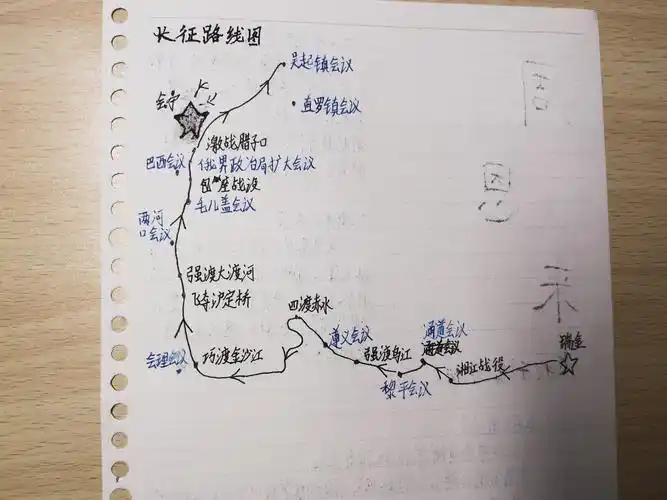 长征路线图
吴起镇会议
会宁
直罗镇会议
激战腊子口
巴西会议
俄界政治局扩大会议
包座战役
毛儿盖会议
两河
口会议
强渡大渡河
飞夺泸定桥
四渡赤水
遵义会议
通道会议
瑞金
会理会议
巧渡金沙江
强渡乌江
湘江战役
黎平会议